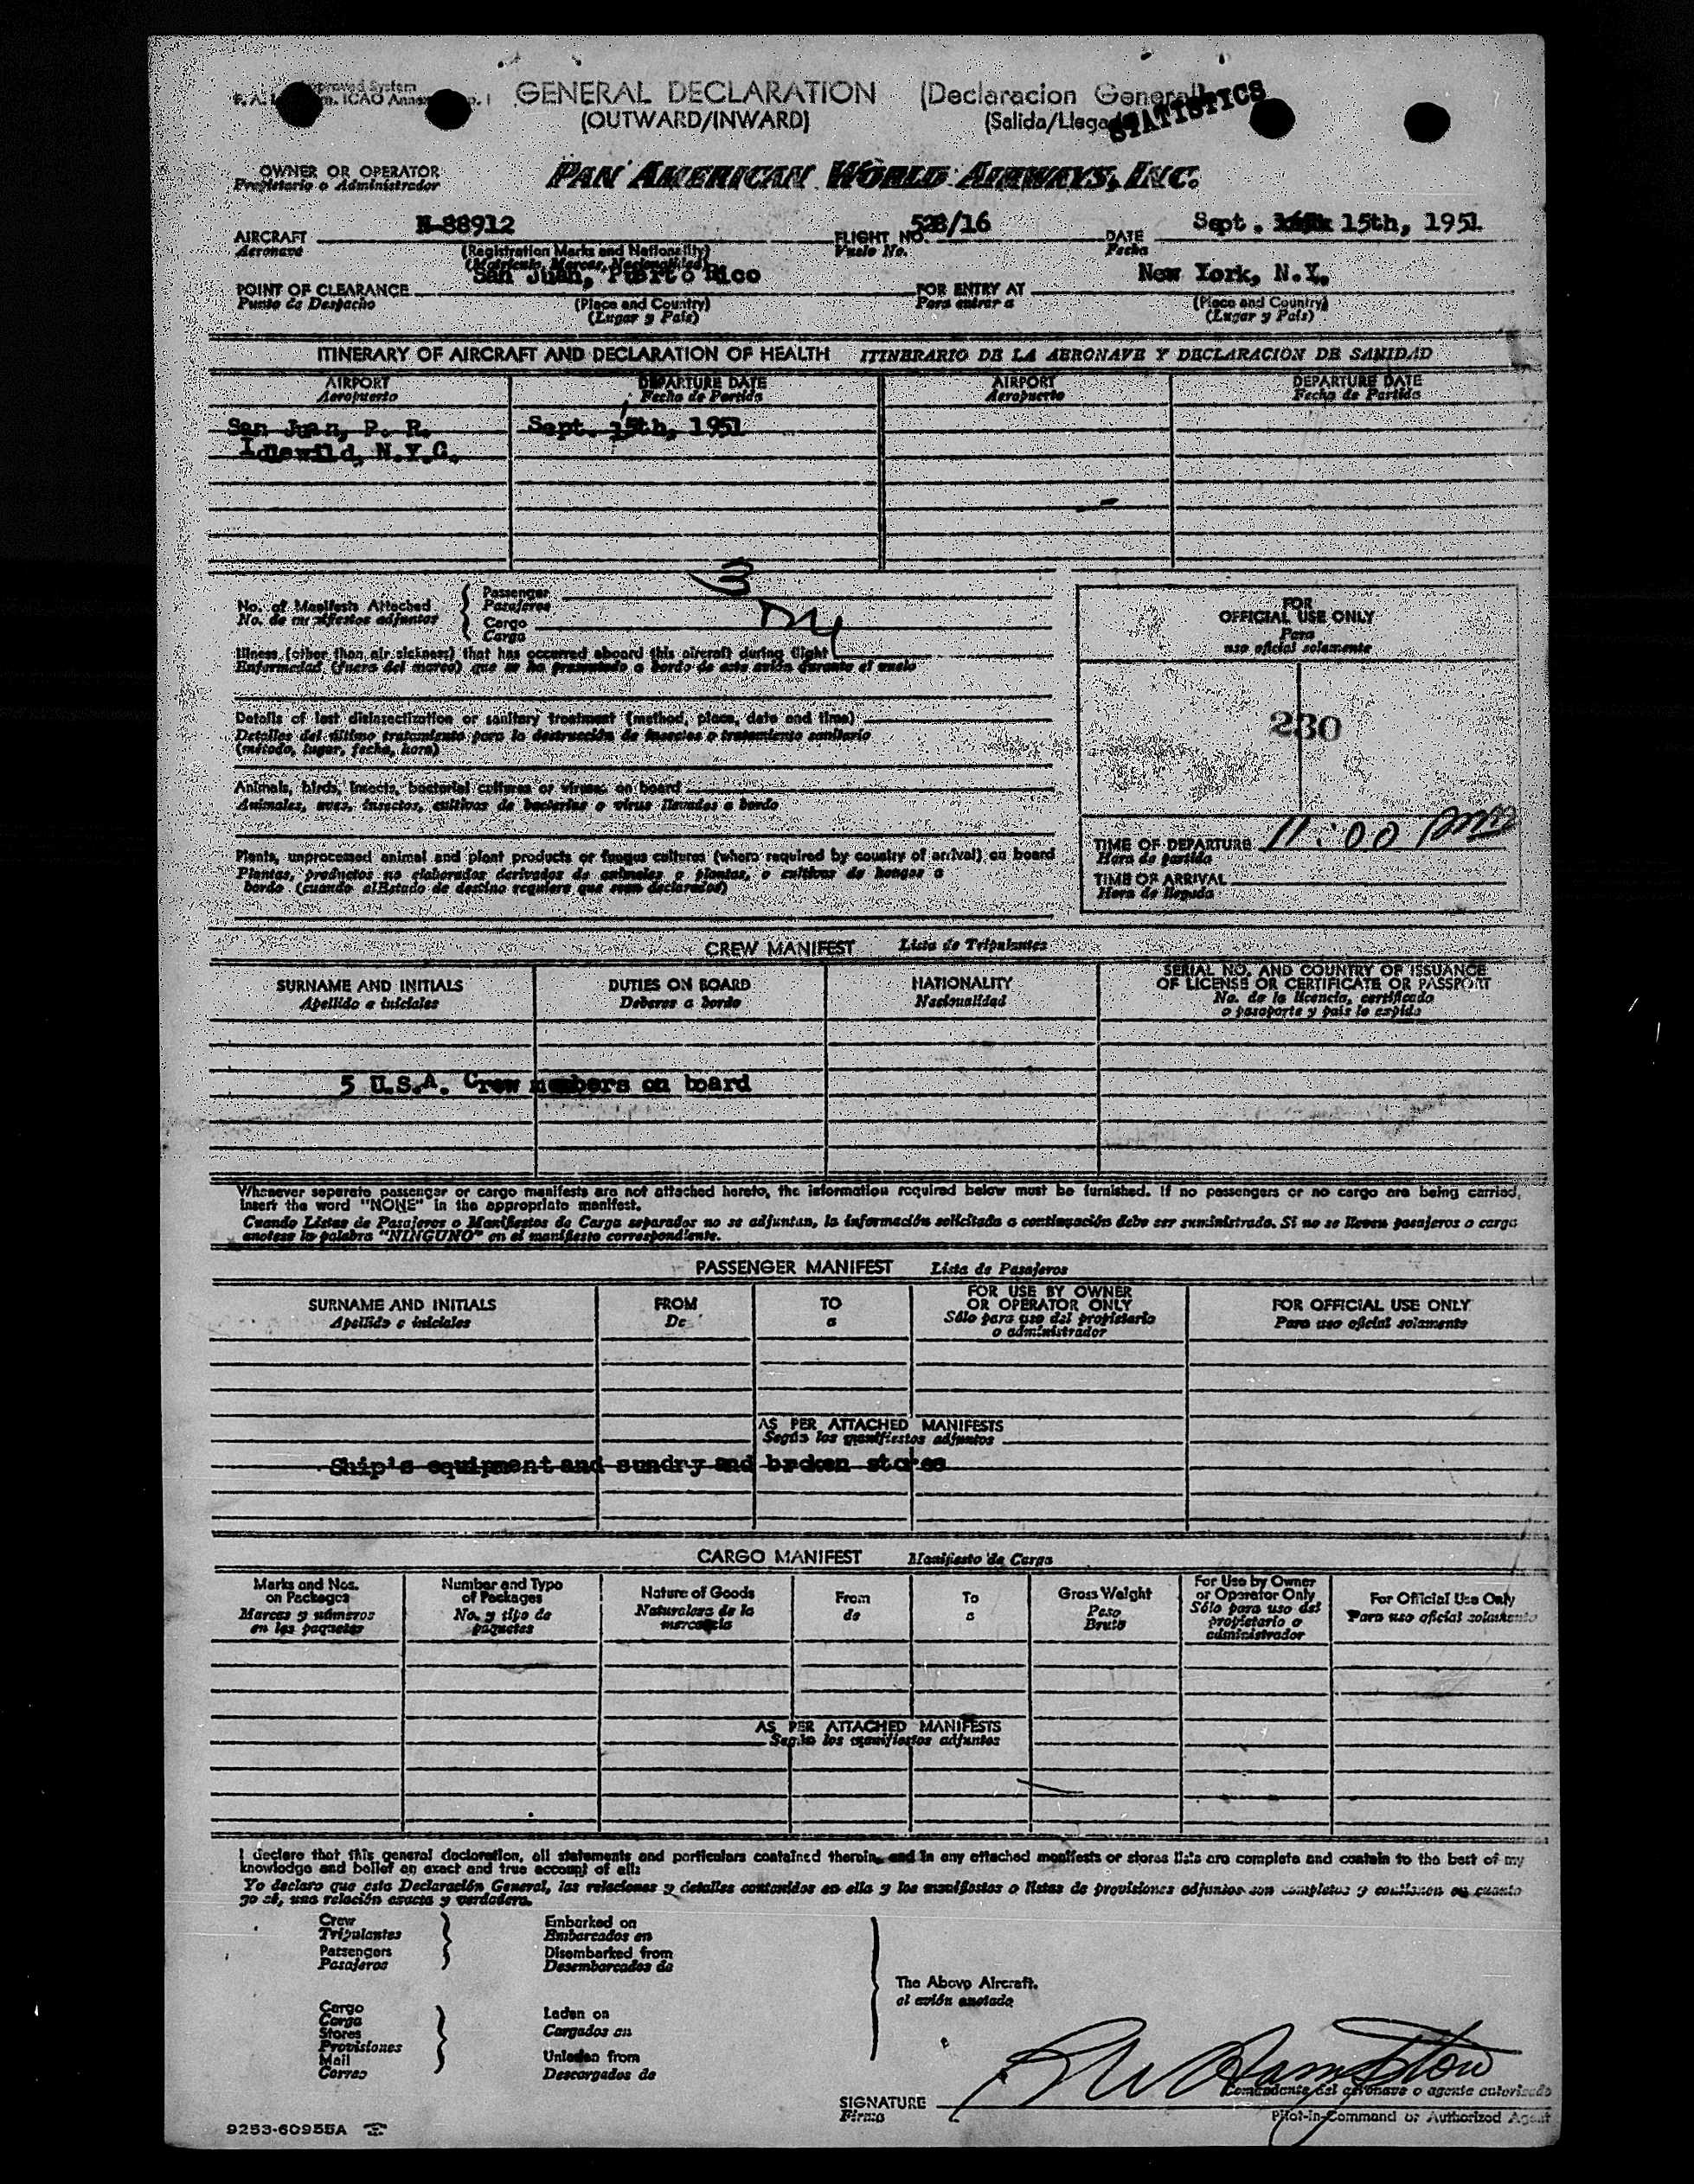 GENERAL DECLARATION (Declaracion General)
(OUTWARD/INWARD) (Salida/Llegada)
STATISTICS
OWNER OR OPERATOR
Propietario o Administrador
PAN AMERICAN WORLD AIRWAYS, INC.
AIRCRAFT N-88912 FLIGHT NO. 528/16 DATE Sept. 15th, 1951
Aeronave (Registration Marks and Nationality) Vuelo No. Fecha
San Juan, Puerto Rico New York, N.Y.
POINT OF CLEARANCE FOR ENTRY AT
Punto de Despacho (Place and Country) Para entrar a (Place and Country)
(Lugar y País) (Lugar y País)
ITINERARY OF AIRCRAFT AND DECLARATION OF HEALTH ITINERARIO DE LA AERONAVE Y DECLARACION DE SANIDAD
AIRPORT DEPARTURE DATE AIRPORT DEPARTURE DATE
Aeropuerto Fecha de Partida Aeropuerto Fecha de Partida
San Juan, P. R. Sept. 15th, 1951
Idlewild, N.Y.C.
3
No. of Manifests Attached Passenger
No. de manifestos adjuntos Pasajeros
Cargo
Carga
Illness (other than air sickness) that has occurred aboard this aircraft during flight
Enfermedad (fuera del mareo) que se ha presentado a bordo de este avión durante el vuelo
Details of last disinsectization or sanitary treatment (method, place, date and time)
Detalles del último tratamiento para la destrucción de insectos o tratamiento sanitario
(método, lugar, fecha, hora)
Animals, birds, insects, bacterial cultures or viruses on board
Animales, aves, insectos, cultivos de bacterias o virus llevados a bordo
Plants, unprocessed animal and plant products or fungus cultures (where required by country of arrival) on board
Plantas, productos no elaborados derivados de animales o plantas, o cultivos de hongos a
bordo (cuando el Estado de destino requiera que sean declarados)
FOR
OFFICIAL USE ONLY
Para
uso oficial solamente
230
TIME OF DEPARTURE 11:00 pm
Hora de partida
TIME OF ARRIVAL
Hora de llegada
CREW MANIFEST Lista de Tripulantes
SURNAME AND INITIALS DUTIES ON BOARD NATIONALITY SERIAL NO. AND COUNTRY OF ISSUANCE
OF LICENSE OR CERTIFICATE OR PASSPORT
Apellido e iniciales Deberes a bordo Nacionalidad No. de la licencia, certificado
o pasaporte y país lo expide
5 U.S.A. Crew members on board
Whenever separate passenger or cargo manifests are not attached hereto, the information required below must be furnished. If no passengers or no cargo are being carried,
insert the word "NONE" in the appropriate manifest.
Cuando Listas de Pasajeros o Manifiestos de Carga separados no se adjuntan, la información solicitada a continuación debe ser suministrada. Si no se llevan pasajeros o carga
anotese la palabra "NINGUNO" en el manifiesto correspondiente.
PASSENGER MANIFEST Lista de Pasajeros
SURNAME AND INITIALS FROM TO FOR USE BY OWNER
OR OPERATOR ONLY FOR OFFICIAL USE ONLY
Apellido e iniciales De a Sólo para uso del propietario
o administrador Para uso oficial solamente
AS PER ATTACHED MANIFESTS
Según los manifiestos adjuntos
Ship's equipment and sundry and broken stores
CARGO MANIFEST Manifiesto de Carga
Marks and Nos.
on Packages
Marcas y números
en los paquetes
Number and Type
of Packages
No. y tipo de
paquetes
Nature of Goods
Naturaleza de la
mercancía
From
de
To
a
Gross Weight
Peso
Bruto
For Use by Owner
or Operator Only
Sólo para uso del
propietario o
administrador
For Official Use Only
Para uso oficial solamente
AS PER ATTACHED MANIFESTS
Según los manifiestos adjuntos
I declare that this general declaration, all statements and particulars contained therein, and in any attached manifests or stores lists are complete and contain to the best of my
knowledge and belief an exact and true account of all:
Yo declaro que esta Declaración General, las relaciones y detalles contenidos en ella y los manifiestos o listas de provisiones adjuntos son completos y contienen en cuanto
yo sé, una relación exacta y verdadera.
Crew Embarked on
Tripulantes Embarcados en
Passengers Disembarked from
Pasajeros Desembarcados de
The Above Aircraft.
al avión anotado
Cargo Laden on
Carga Cargados en
Stores
Provisiones
Mail Unladen from
Correo Descargados de
SIGNATURE
Firma
Comandante del aeronave o agente autorizado
Pilot-in-Command or Authorized Agent
9253-60955A